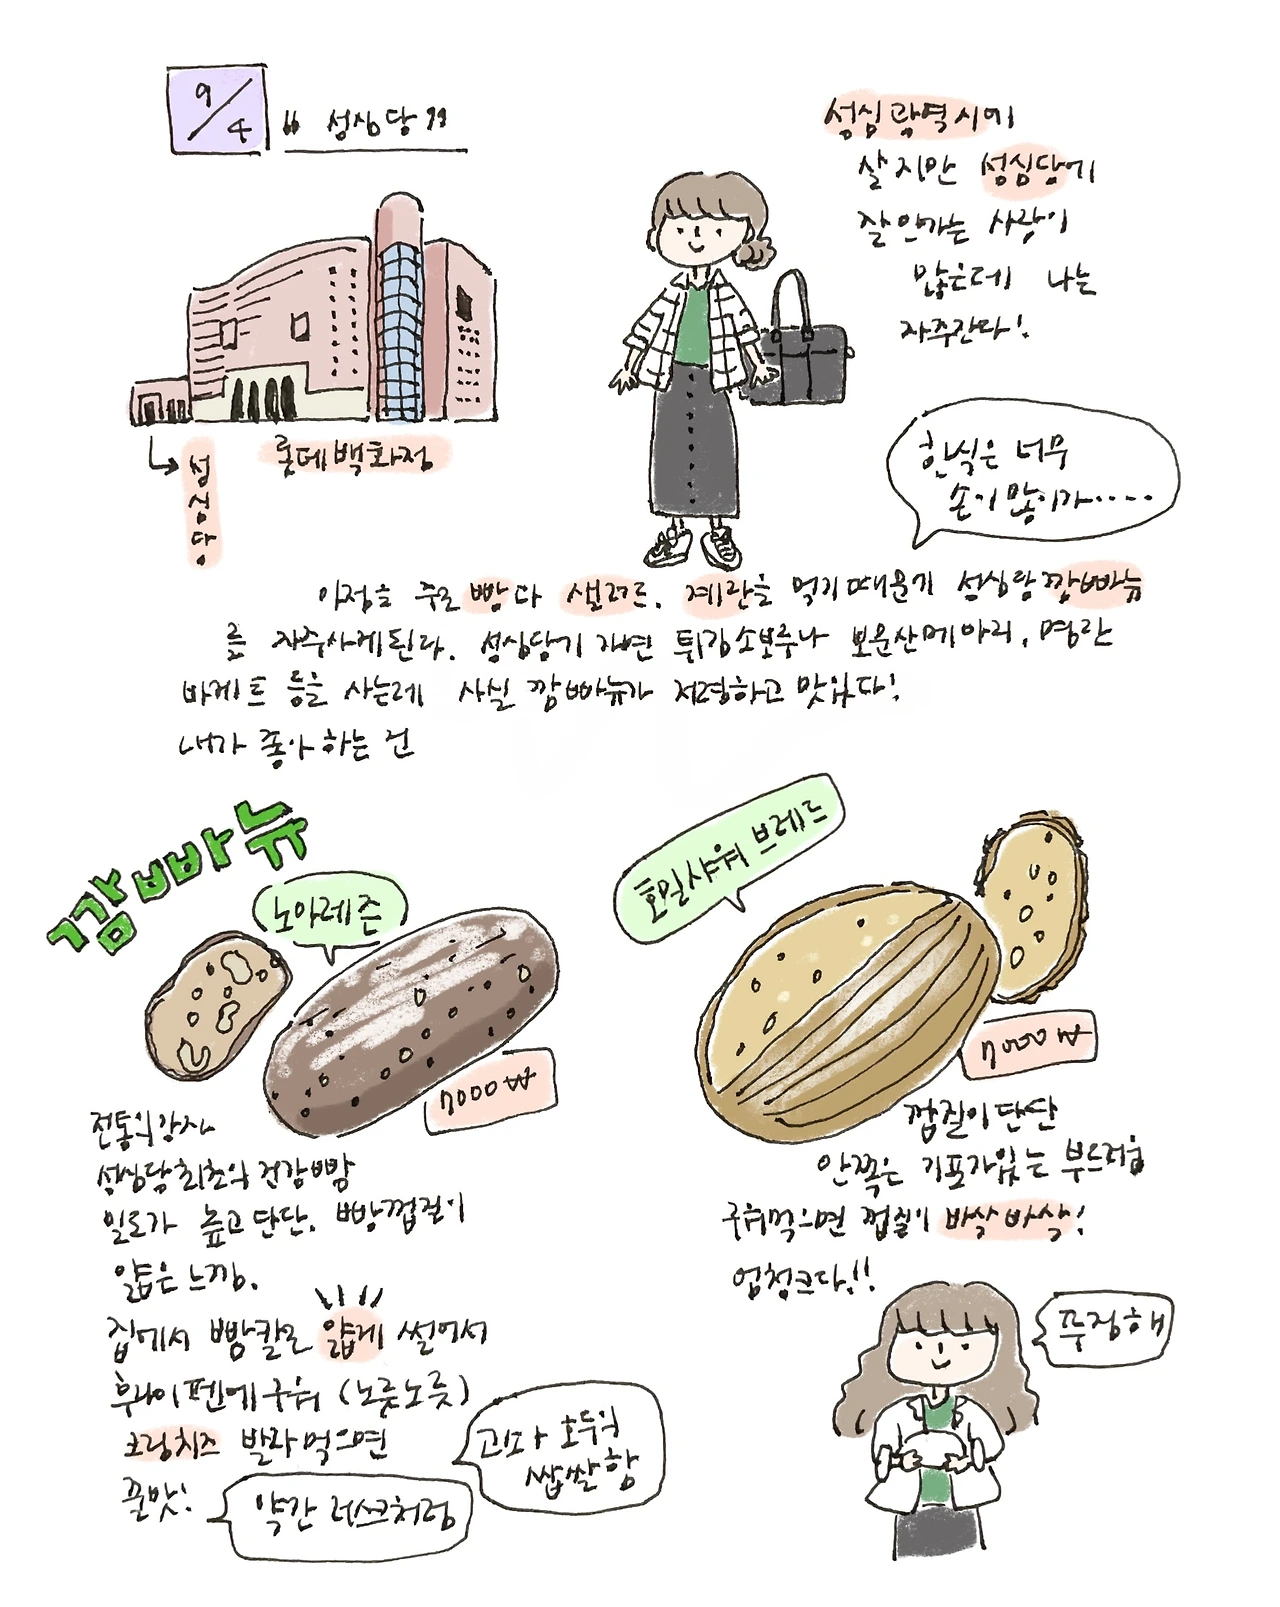 9/4 "성심당"
성심광역시에
살지만 성심당에
잘안가는 사람이
많은데 나는
자주간다!
성심당
롯데백화점
한식은 너무
손이 많이가....
아침을 주로 빵과 샐러드, 계란을 먹기때문에 성심당 깜빠뉴
를 자주사게된다. 성심당에 가면 튀김소보루나 보문산메아리, 명란
바게트 등을 사는데 사실 깜빠뉴가 저렴하고 맛있다!
내가 좋아하는 건
깜빠뉴
노아레즌
호밀샤워 브레드
7000₩
7000₩
전통의강자
성심당최초의 건강빵
밀도가 높고 단단. 빵껍질이
얇은 느낌.
집에서 빵칼로 얇게 썰어서
후라이펜에구워 (노릇노릇)
크림치즈 발라먹으면
꿀맛!
약간 러스크처럼
고소한 호두와
쌉쌀함
껍질이단단
안쪽은 기포가있는 부드러움
구워먹으면 껍질이 바삭바삭!
엄청크다!!
푸짐해